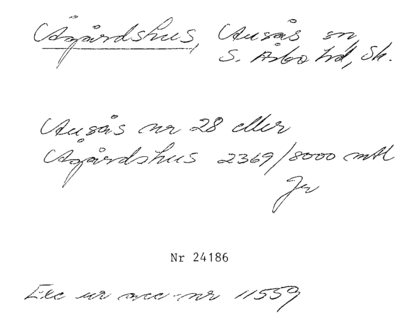 Ågårdshus, Ausås sn,
S. Åsbo hd, Sk.
Ausås nr 28 eller
Ågårdshus 2369/8000 mtl
Jr
Nr 24186
Exc ur acc-nr 11559